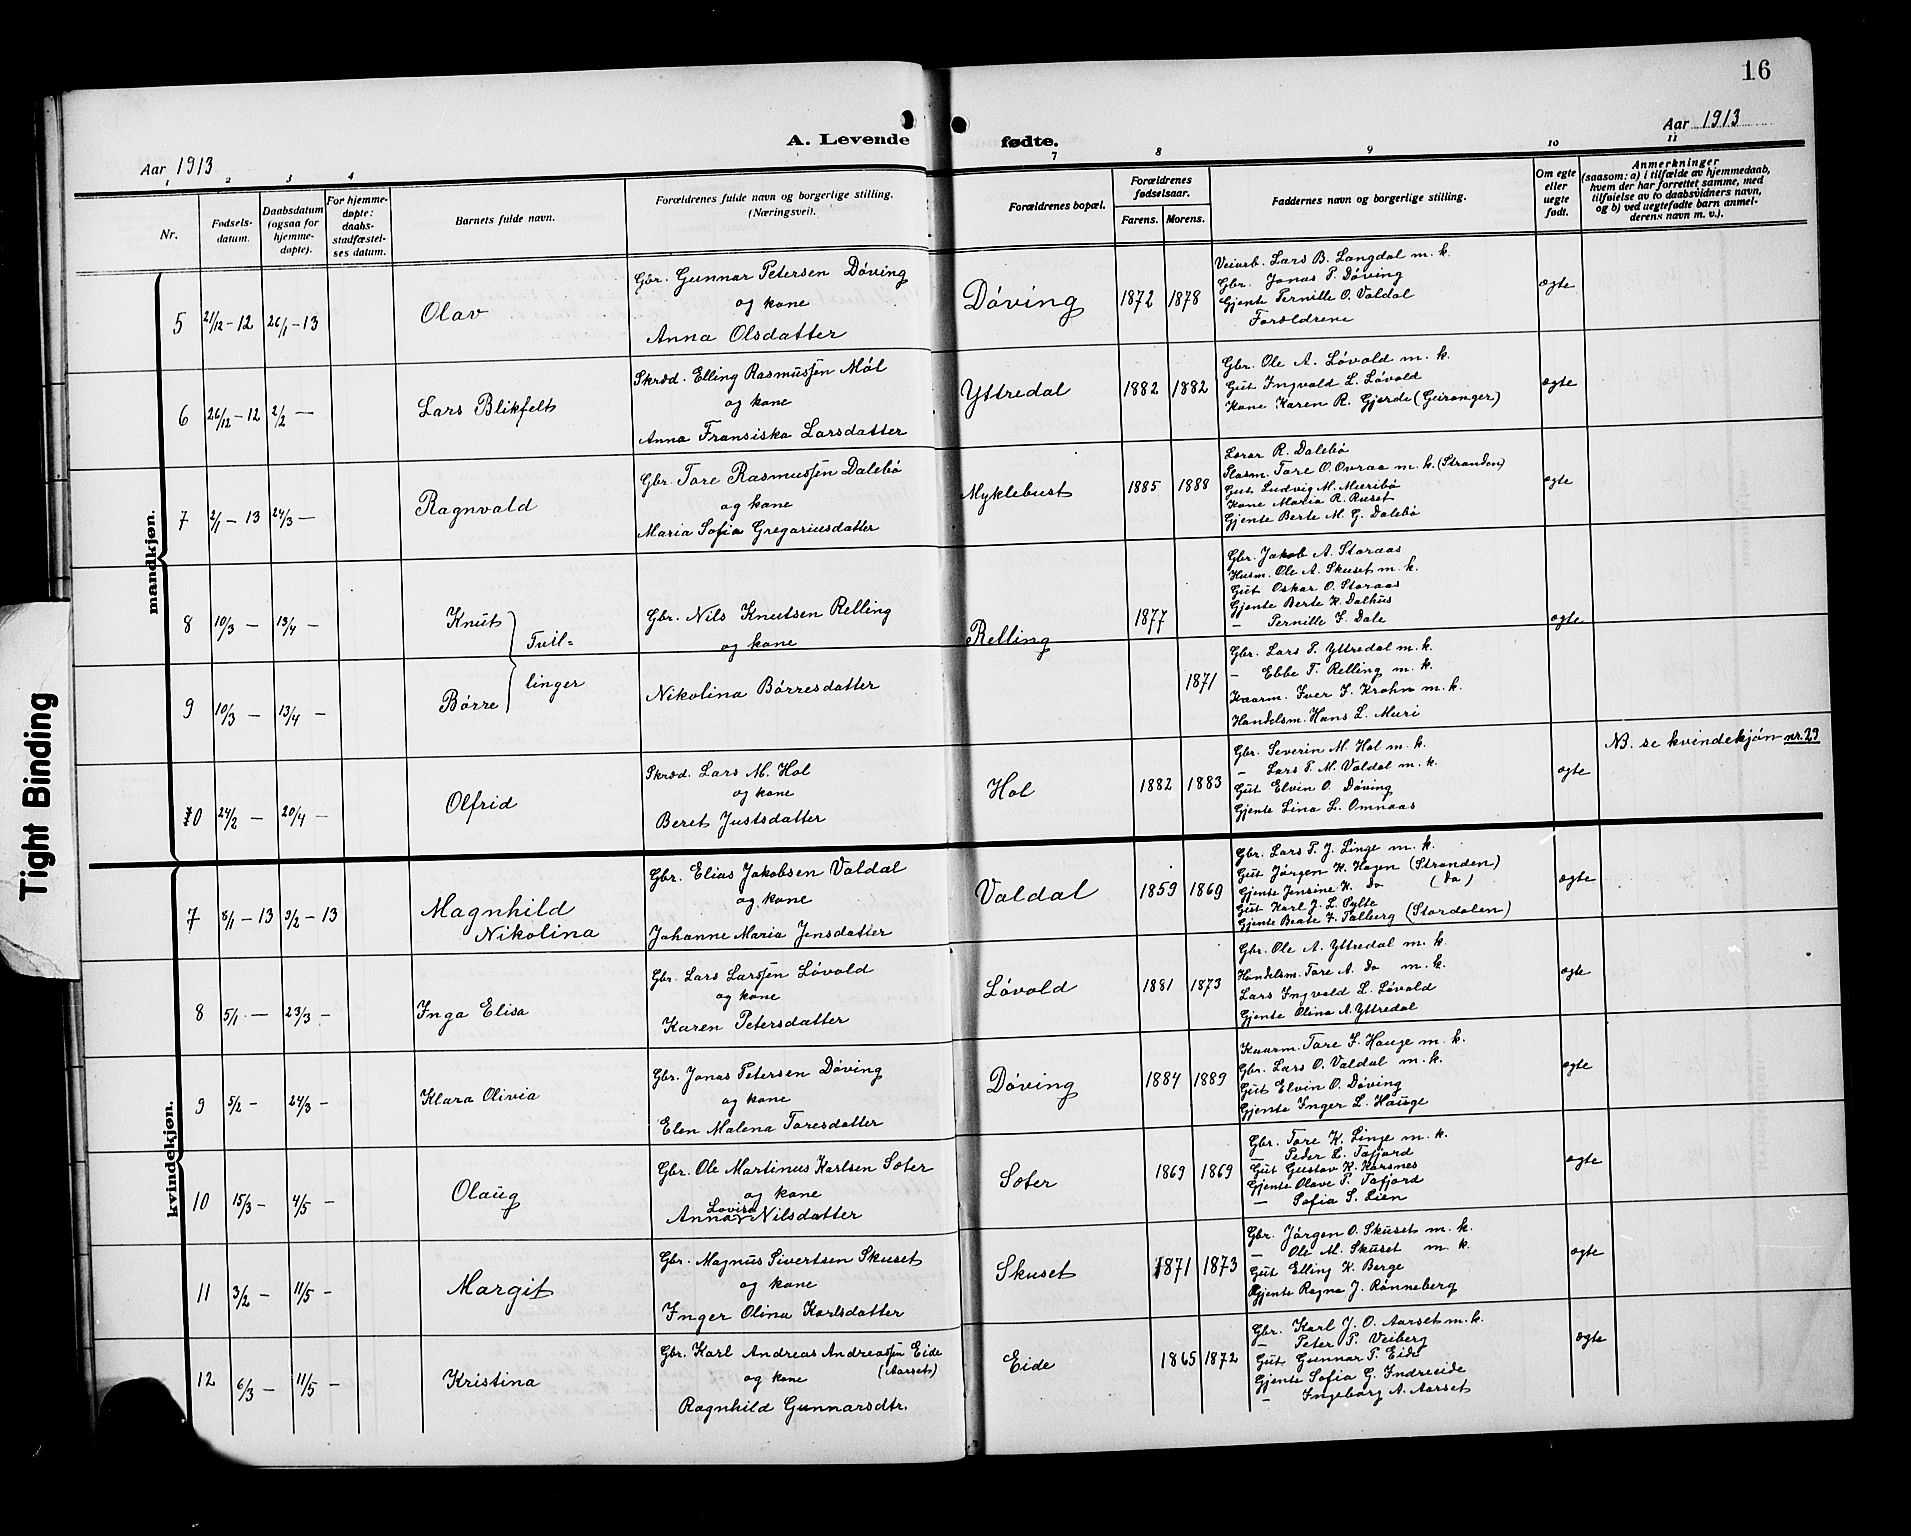 16
A. Levende fødte.
Aar 1913
Aar 1913
1 2 3 4 7 8 9 10 11
Nr.
Fødsels-
datum.
Daabsdatum
(ogsaa for
hjemme-
døpte).
For hjemme-
døpte:
daabs-
stadfæstel-
ses datum.
Barnets fulde navn.
Forældrenes fulde navn og borgerlige stilling.
(Næringsvei).
Forældrenes bopæl.
Forældrenes
fødselsaar.
Farens. Morens.
Faddernes navn og borgerlige stilling.
Om egte
eller
uegte
født.
Anmerkninger
(saasom: a) i tilfælde av hjemmedaab,
hvem der har forrettet samme, med
tilføielse av to daabsvidners navn,
og b) ved uegtefødte barn anmel-
derens navn m. v.).
mandkjøn.
5 21/12 - 12 26/1 - 13 Olav
Gbr. Gunnar Petersen Døving
og kone
Anna Olsdatter
Døving 1872 1878
Veiarb. Lars B. Langdal m. k.
Gbr. Jonas P. Døving
Gjente Pernille O. Valdal
Forældrene
ægte
6 26/12 - 12 2/2 — Lars Blikfelt
Skræd. Elling Rasmussen Møl
og kone
Anna Fransiska Larsdatter
Yttredal 1882 1882
Gbr. Ole A. Løvold m. k.
Gut Ingvald L. Løvold
Kone Karen R. Gjerde (Geiranger)
ægte
7 2/1 - 13 24/3 — Ragnvald
Gbr. Tore Rasmussen Dalebø
og kone
Maria Sofia Gregoriusdatter
Myklebust 1885 1888
Lærar R. Dalebø
Plasm. Tore O. Ovraa m. k. (Stranden)
Gut Ludvig M. Muribø
Kone Maria R. Ruset
Gjente Berte M. G. Dalebø
ægte
8 10/3 — 13/4 — Knut
Tvil=
linger
9 10/3 — 13/4 — Børre
Gbr. Nils Knutsen Relling
og kone
Nikolina Børresdatter
Relling 1877 1871
Gbr. Jakob A. Storaas
Husm. Ole A. Skuset m. k.
Gut Oskar O. Storaas
Gjente Berte K. Dalhus
— Pernille I. Dale
ægte
Gbr. Lars P. Yttredal m. k.
— Ebbe T. Relling m. k.
Kaarm. Iver I. Krohn m. k.
Handelsm. Hans L. Muri
10 24/2 — 20/4 — Olfrid
Skræd. Lars M. Hol
og kone
Beret Justsdatter
Hol 1882 1883
Gbr. Severin M. Hol m. k.
— Lars P. M. Valdal m. k.
Gut Elvin O. Døving
Gjente Lina L. Omnaas
ægte
NB. se kvindekjøn nr. 29
kvindekjøn.
7 8/1 - 13 9/2 - 13 Magnhild
Nikolina
Gbr. Elias Jakobsen Valdal
og kone
Johanne Maria Jensdatter
Valdal 1859 1869
Gbr. Lars P. J. Linge m. k.
Gut Jørgen K. Hagen (Stranden)
Gjente Jensine K. do (do)
Gut Karl J. L. Sylte
Gjente Beate K. Talberg (Stordalen)
ægte
8 5/1 — 23/3 — Inga Elisa
Gbr. Lars Larssen Løvold
og kone
Karen Petersdatter
Løvold 1881 1873
Gbr. Ole A. Yttredal m. k.
Handelsm. Tore A. do m. k.
Lars Ingvald L. Løvold
Gjente Olina A. Yttredal
ægte
9 5/2 — 24/3 — Klara Olivia
Gbr. Jonas Petersen Døving
og kone
Elen Malena Toresdatter
Døving 1884 1889
Kaarm. Tore I. Hauge m. k.
Gbr. Lars O. Valdal m. k.
Gut Elvin O. Døving
Gjente Inger L. Hauge
ægte
10 15/3 — 4/5 — Olaug
Gbr. Ole Martinus Karlsen Sæter
og kone
Lovisa
Anna Nilsdatter
Sæter 1869 1869
Gbr. Tore K. Linge m. k.
— Peder L. Tafjord
Gut Gustav K. Korsnes
Gjente Olave P. Tafjord
— Sofia S. Lien
ægte
11 3/2 — 11/5 — Margit
Gbr. Magnus Sivertsen Skuset
og kone
Inger Olina Karlsdatter
Skuset 1871 1873
Gbr. Jørgen O. Skuset m. k.
— Ole M. Skuset m. k.
Gut Elling K. Berge
Gjente Ragna J. Rønneberg
ægte
12 6/3 — 11/5 — Kristina
Gbr. Karl Andreas Andreassen Eide
(Aarset)
og kone
Ragnhild Gunnarsdtr.
Eide 1865 1872
Gbr. Karl J. O. Aarset m. k.
— Peter P. Veiberg
Gut Gunnar P. Eide
Gjente Sofia G. Indreeide
— Ingeborg A. Aarset
ægte
Tight Binding